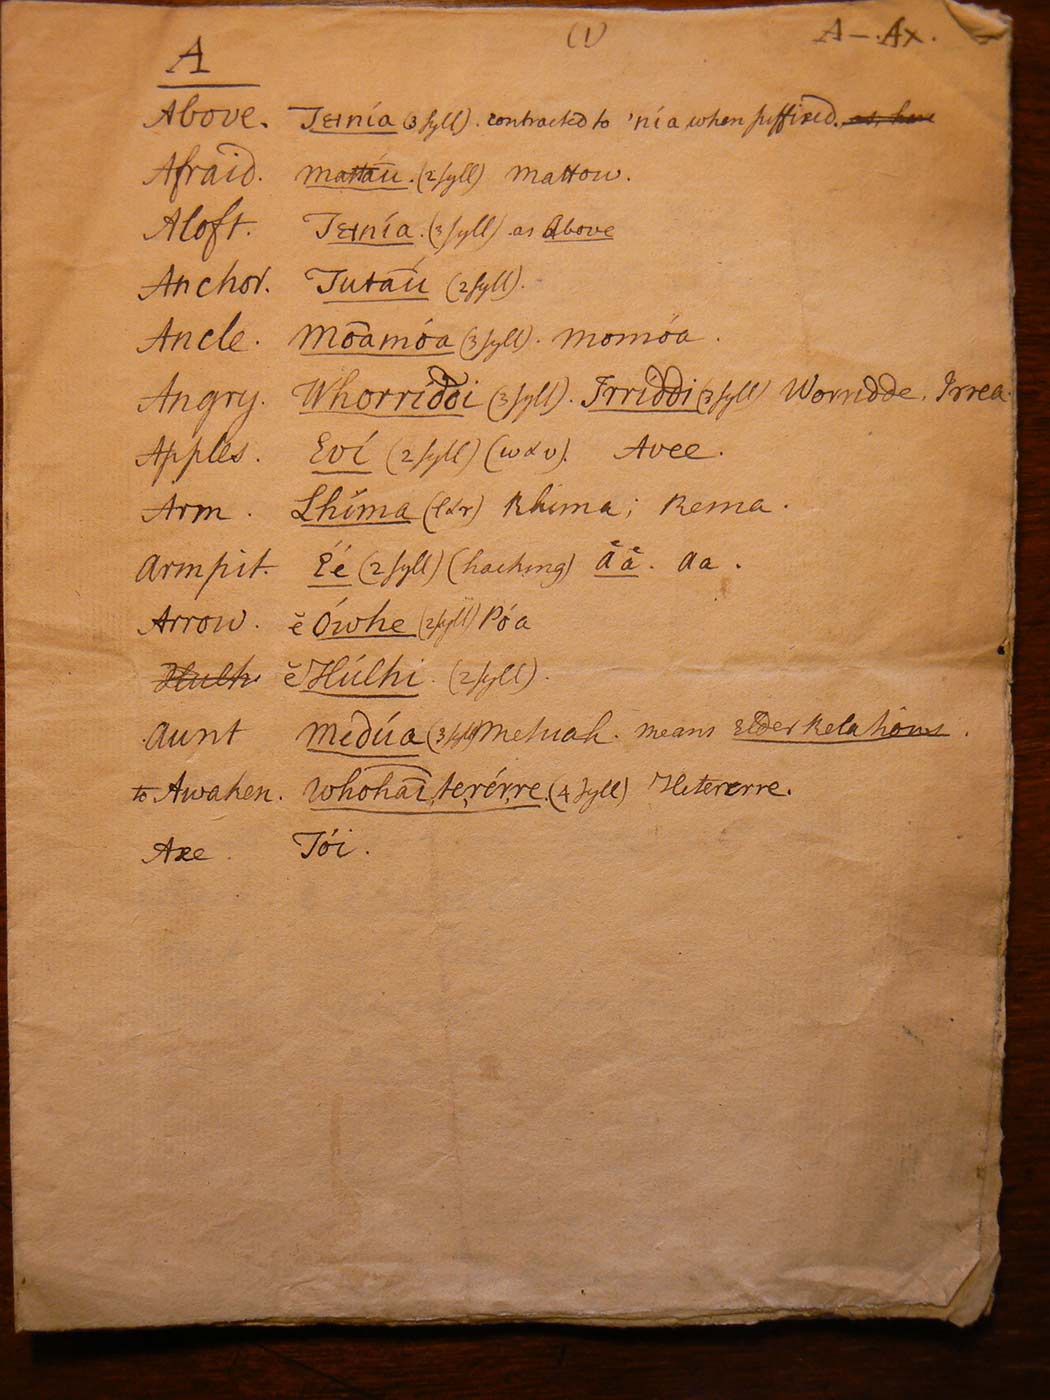 (1) A – Ax.
A
Above. Tɛɪnía (3 syll). contracted to 'nía when suffixed.
Afraid. mattáu. (2 syll) mattow.
Aloft. Tɛɪnía. (3 syll) as Above
Anchor. Tutaú (2 syll).
Ancle. Mōamóa (3 syll). momóa.
Angry. Whorríddi (3 syll). Irriddi (3 syll) Worridde, Irrea.
Apples. Eví (2 syll) (w & v). Avee.
Arm. Lhíma (l & r) Rhima; Rema.
Armpit. Eé (2 syll) (hacking) áá. aa.
Arrow. ĕ Ówhe (2 syll) Póa
ĕ Húlhi. (2 syll).
Aunt Medúa (3 syll) Metuah. means Elder Relations.
to Awaken. Whohai,terérre. (4 syll) Heterrerre.
Axe. Tói.